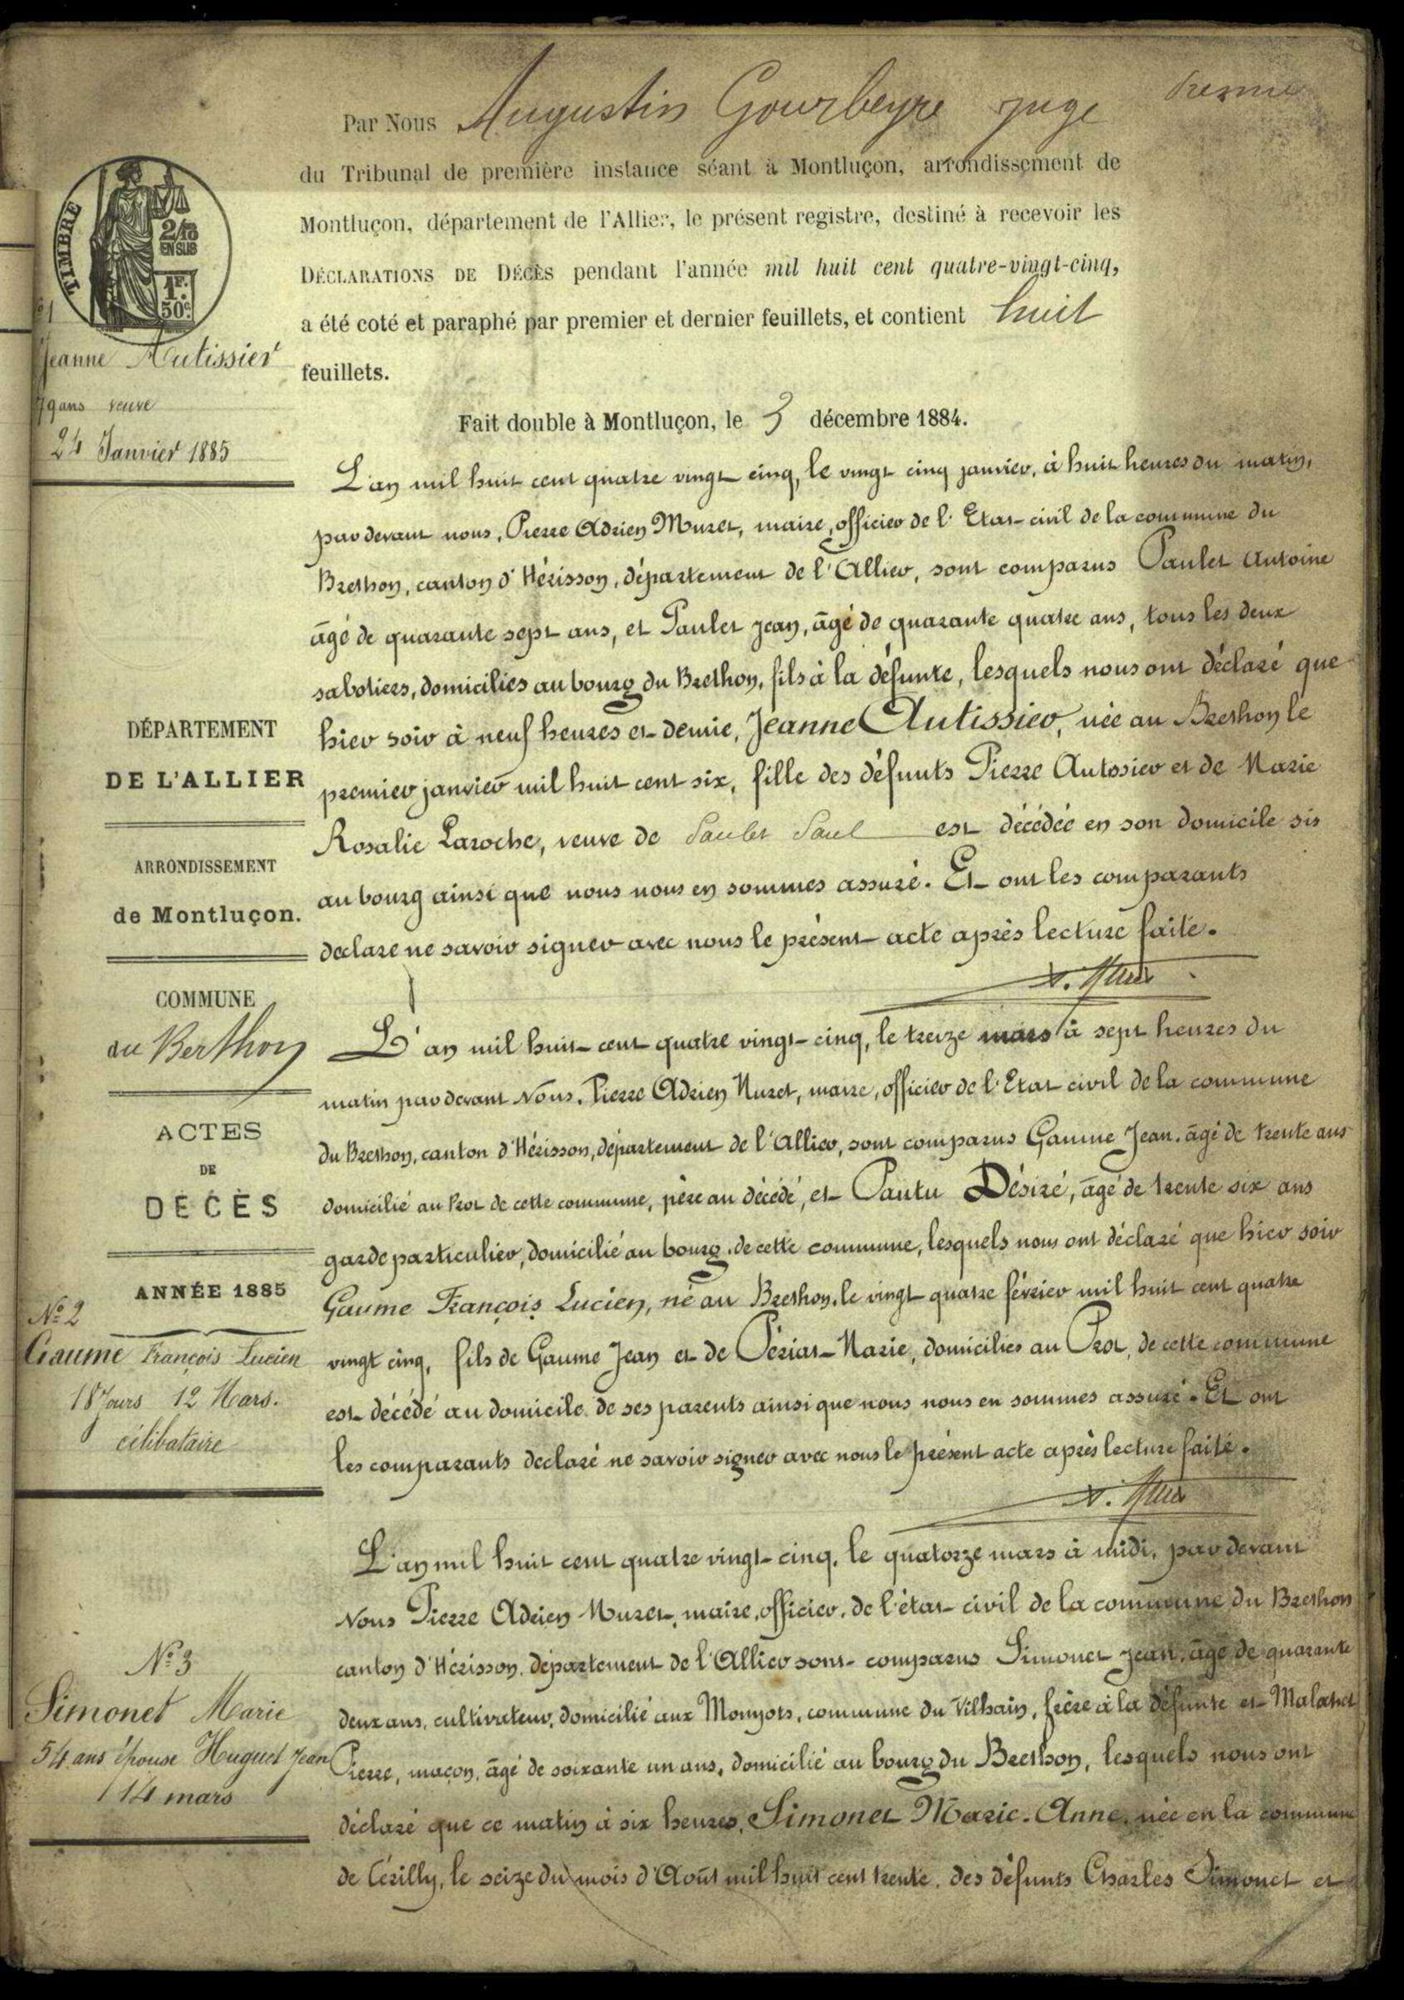 Par Nous Augustin Gourbeyre juge
du Tribunal de première instance séant à Montluçon, arrondissement de
Montluçon, département de l'Allier, le présent registre, destiné à recevoir les
DÉCLARATIONS DE DÉCÈS pendant l'année mil huit cent quatre-vingt-cinq,
a été coté et paraphé par premier et dernier feuillets, et contient huit
feuillets.
Fait double à Montluçon, le 3 décembre 1884.
TIMBRE
2/10
EN SUS
1F.
50c
1
Jeanne Autissier
79 ans veuve
24 Janvier 1885
L'an mil huit cent quatre vingt cinq, le vingt cinq janvier, à huit heures du matin,
par devant nous, Pierre Adrien Muret, maire, officier de l'Etat-civil de la commune du
Brethon, canton d'Hérisson, département de l'Allier, sont comparus Paulet Antoine
âgé de quarante sept ans, et Paulet Jean, âgé de quarante quatre ans, tous les deux
sabotiers, domiciliés au bourg du Brethon, fils à la défunte, lesquels nous ont déclaré que
hier soir à neuf heures et demie, Jeanne Autissier, née au Brethon le
premier janvier mil huit cent six, fille des défunts Pierre Autissier et de Marie
Rosalie Laroche, veuve de Paulet Paul est décédée en son domicile sis
au bourg ainsi que nous nous en sommes assuré. Et ont les comparants
declare ne savoir signer avec nous le présent acte après lecture faite.
A. Muret
DÉPARTEMENT
DE L'ALLIER
ARRONDISSEMENT
de Montluçon.
COMMUNE
du Berthon
ACTES
DE
DÉCÈS
ANNÉE 1885
No 2
Gaume François Lucien
18 Jours 12 Mars.
célibataire
L'an mil huit cent quatre vingt-cinq, le treize mars à sept heures du
matin par devant Nous, Pierre Adrien Muret, maire, officier de l'Etat civil de la commune
du Brethon, canton d'Hérisson, département de l'Allier, sont comparus Gaume Jean, âgé de trente ans
domicilié au Prot de cette commune, père au décédé, et Pautu Désiré, âgé de trente six ans
garde particulier, domicilié au bourg de cette commune, lesquels nous ont déclaré que hier soir
Gaume François Lucien, né au Brethon, le vingt quatre février mil huit cent quatre
vingt cinq, fils de Gaume Jean et de Périat Marie, domiciliés au Prot, de cette commune
est décédé au domicile de ses parents ainsi que nous nous en sommes assuré. Et ont
les comparants declaré ne savoir signer avec nous le présent acte après lecture faite.
A. Muret
No 3
Simonet Marie
54 ans épouse Huguet Jean
14 mars
L'an mil huit cent quatre vingt-cinq, le quatorze mars à midi, par devant
Nous Pierre Adrien Muret, maire, officier de l'état-civil de la commune du Brethon
canton d'Hérisson, département de l'Allier sont comparus Simonet Jean, âgé de quarante
deux ans, cultivateur, domicilié aux Monyots, commune du Vilhain, frère à la défunte et Malatret
Pierre, maçon, âgé de soixante un ans, domicilié au bourg du Brethon, lesquels nous ont
déclaré que ce matin à six heures, Simonet Marie-Anne, née en la commune
de Cérilly, le seize du mois d'Août mil huit cent trente, des défunts Charles Simonet et